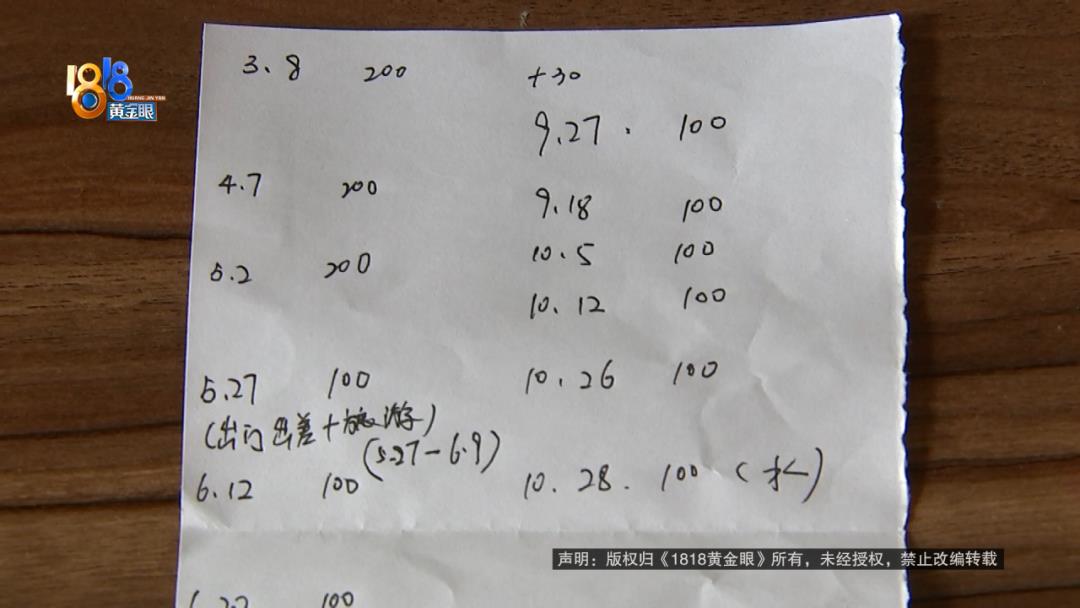 1818
HUANG JIN YAN
黄金眼
3.8 200
4.7 200
5.2 200
5.27 100
(出门出差+旅游)
(5.27-6.9)
6.12 100
100
+30
9.27. 100
9.18 100
10.5 100
10.12 100
10.26 100
10.28. 100 (水)
声明：版权归《1818黄金眼》所有，未经授权，禁止改编转载